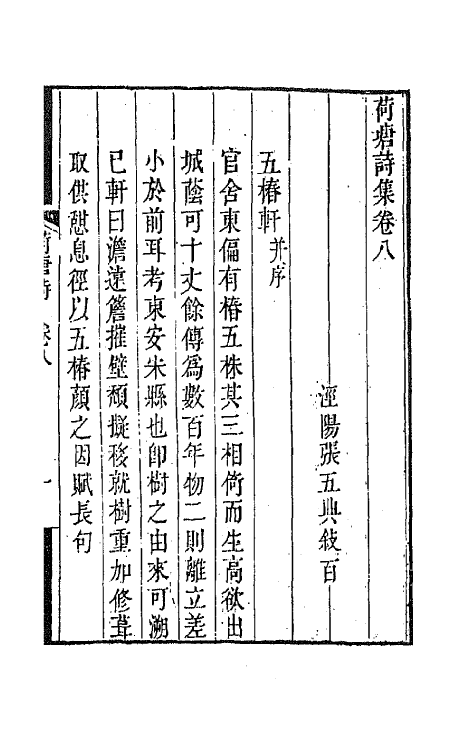 荷塘詩集卷八
涇陽張五典敍百
五椿軒并序
官舍東偏有椿五株其三相倚而生高欲出
城蔭可十丈餘傳爲數百年物二則離立差
小於前耳考東安未縣也卽樹之由來可溯
已軒曰澹遠簷摧壁頹擬移就樹重加修葺
取供憩息徑以五椿顏之因賦長句
荷塘詩 卷八 一